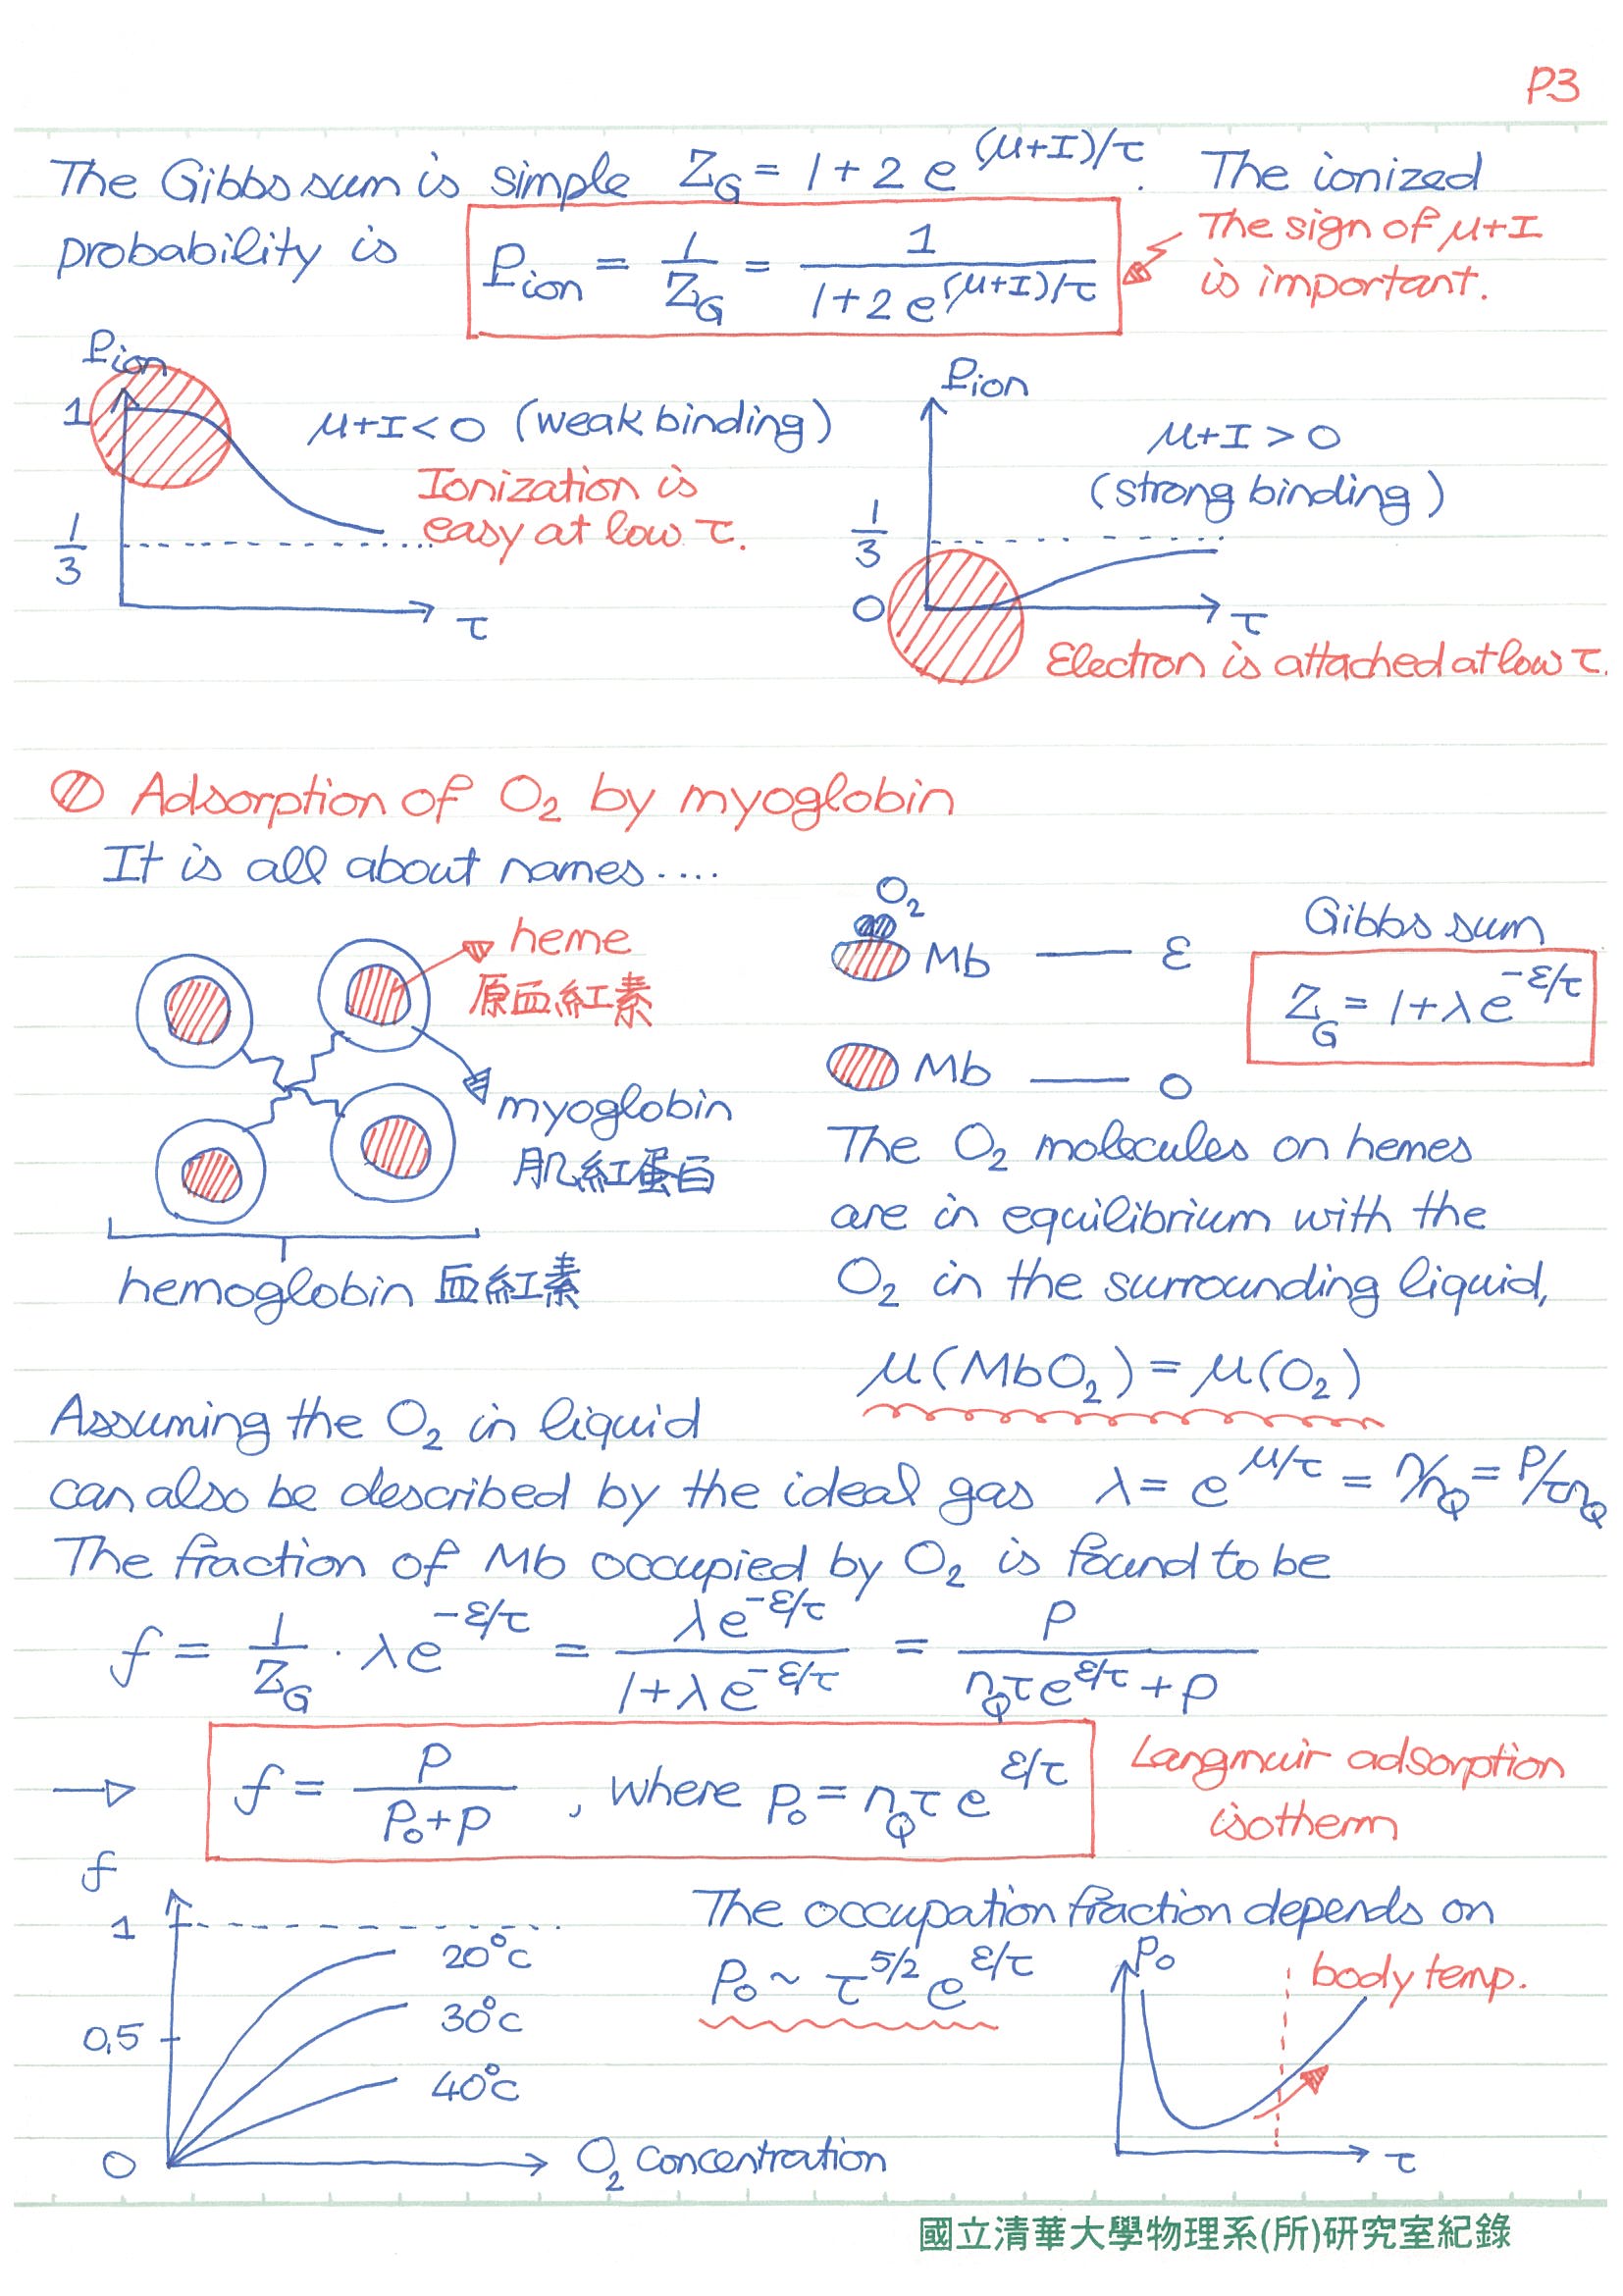 P3
The Gibbs sum is simple Z_G = 1 + 2 e^{(μ+I)/τ}. The ionized
probability is P_ion = 1/Z_G = 1/(1+2 e^{(μ+I)/τ})
The sign of μ+I
is important.
P_ion
1
μ+I < 0 (weak binding)
Ionization is
easy at low τ.
1/3
τ
P_ion
μ+I > 0
(strong binding)
1/3
0
τ
Electron is attached at low τ.
Adsorption of O₂ by myoglobin
It is all about names....
heme
原血紅素
myoglobin
肌紅蛋白
hemoglobin 血紅素
O₂
Mb — ε
Mb — 0
Gibbs sum
Z_G = 1+λe^{-ε/τ}
The O₂ molecules on hemes
are in equilibrium with the
O₂ in the surrounding liquid,
μ(MbO₂) = μ(O₂)
Assuming the O₂ in liquid
can also be described by the ideal gas λ = e^{μ/τ} = n/n_Q = P/τn_Q
The fraction of Mb occupied by O₂ is found to be
f = 1/Z_G · λe^{-ε/τ} = λe^{-ε/τ}/(1+λe^{-ε/τ}) = P/(n_Qτe^{ε/τ}+P)
→ f = P/(P₀+P), where P₀ = n_Qτ e^{ε/τ}
Langmuir adsorption
isotherm
f
1
20°C
30°C
0.5
40°C
0
O₂ concentration
The occupation fraction depends on
P₀ ~ τ^{5/2} e^{ε/τ}
P₀
body temp.
τ
國立清華大學物理系(所)研究室紀錄